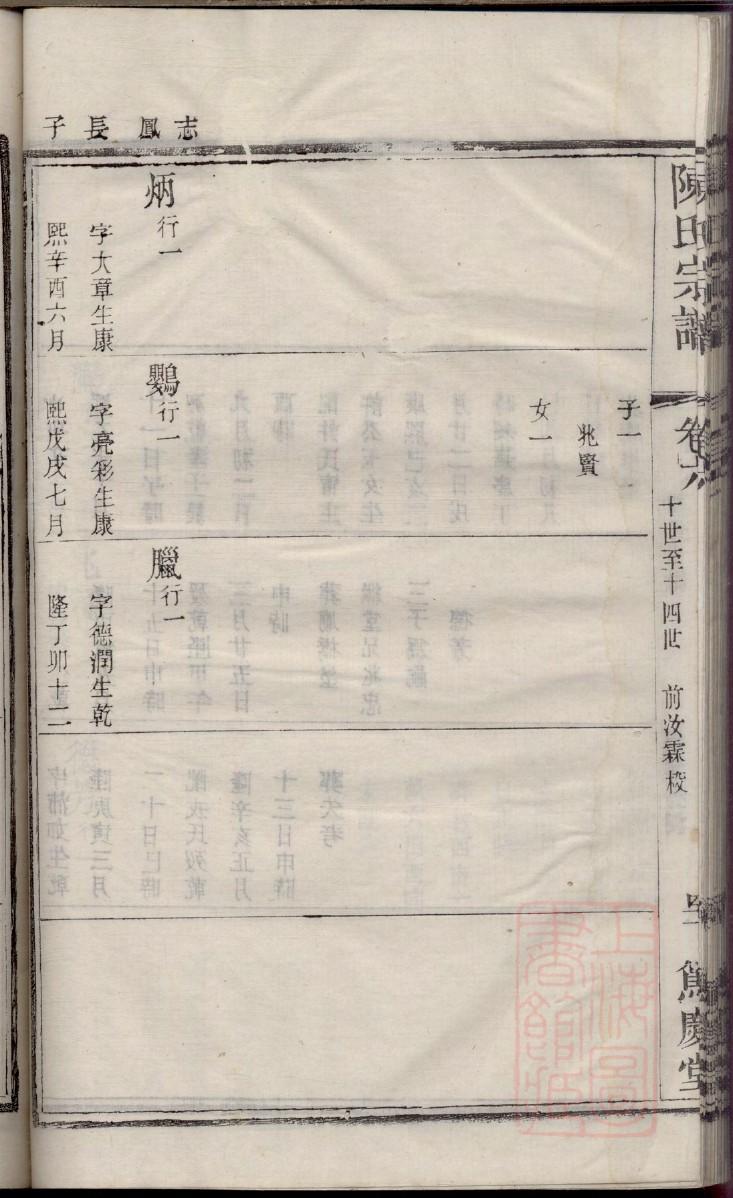 陳氏宗譜
卷六
十世至十四世
前汝霖校
篤慶堂
志鳳長子
炳行一
字大章生康
熙辛酉六月
子一
兆賢
女一
鸚行一
字亮彩生康
熙戊戌七月
臘行一
字德潤生乾
隆丁卯十二
上海圖
書館藏